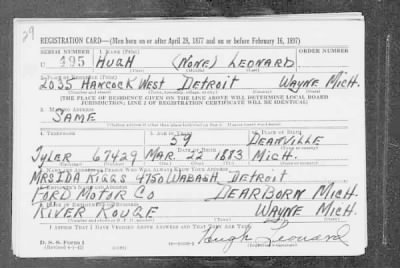 29
REGISTRATION CARD—(Men born on or after April 28, 1877 and on or before February 16, 1897)
SERIAL NUMBER 1. NAME (Print) ORDER NUMBER
U 495 HUGH (NONE) LEONARD
(First) (Middle) (Last)
2. PLACE OF RESIDENCE (Print)
2035 HANCOCK WEST DETROIT WAYNE MICH.
(Number and street) (Town, township, village, or city) (County) (State)
[THE PLACE OF RESIDENCE GIVEN ON THE LINE ABOVE WILL DETERMINE LOCAL BOARD
JURISDICTION; LINE 2 OF REGISTRATION CERTIFICATE WILL BE IDENTICAL]
3. MAILING ADDRESS
SAME
4. TELEPHONE 5. AGE IN YEARS 6. PLACE OF BIRTH
59 DEANVILLE
DATE OF BIRTH (Town or county)
TYLER 67429 MAR. 22 1883 MICH.
7. NAME AND ADDRESS OF PERSON WHO WILL ALWAYS KNOW YOUR ADDRESS
MRS IDA RIGGS 4750 WABASH DETROIT
8. EMPLOYER'S NAME AND ADDRESS
FORD MOTOR CO DEARBORN MICH.
9. PLACE OF EMPLOYMENT OR BUSINESS
RIVER ROUGE WAYNE MICH.
I AFFIRM THAT I HAVE VERIFIED ABOVE ANSWERS AND THAT THEY ARE TRUE.
D. S. S. Form 1
(Revised 4-1-42)
Hugh Leonard